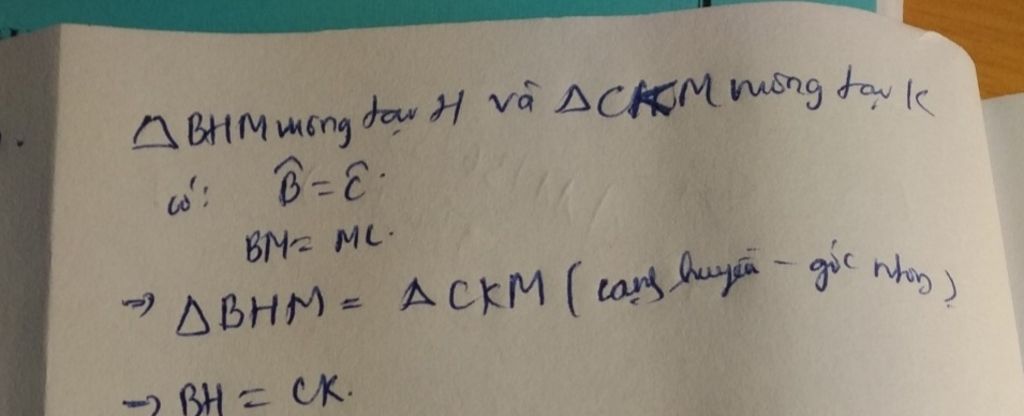 △BHM vuông tại H và △CKM vuông tại K
có: B̂ = Ĉ.
BM = MC.
→ △BHM = △CKM (cạnh huyền – góc nhọn)
→ BH = CK.